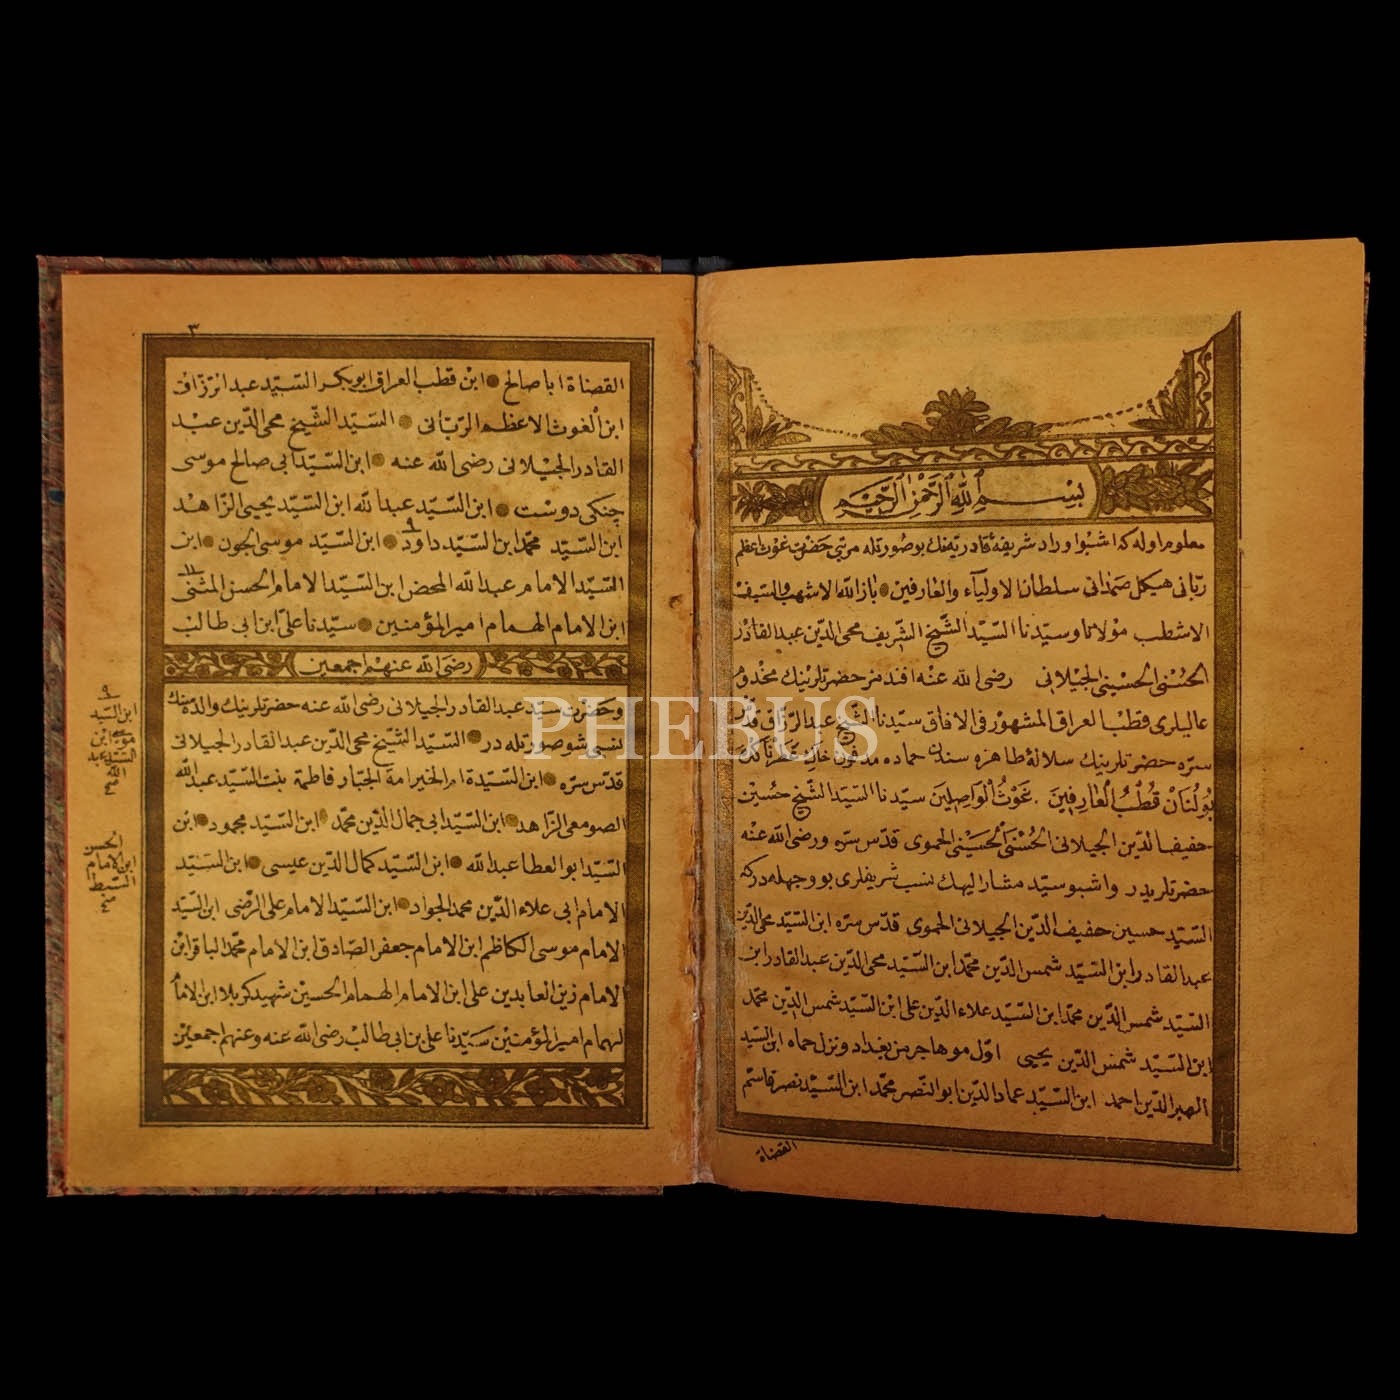 بِسْمِ اللّٰهِ الرَّحْمٰنِ الرَّحِيْمِ
معلوم اوله كه اشبو اوراد شريفهٔ قادريه‌نك بوصورتله مرتبى حضرت غوث اعظم
ربّانى هيكل صمدانى سلطان الاوليآء والعارفين بازالله الاشهب والسيف
الاشطب مولانا وسيّدنا السيّد الشّيخ الشّريف محى الدّين عبد القادر
الحسنى الحسينى الجيلانى رضى الله عنه افندمز حضرتلرينك مخدوم
عاليلرى قطب العراق المشهور فى الافاق سيّدنا الشّيخ عبد الرّزاق قدّس
سرّه حضرتلرينك سلالهٔ طاهره سندن حماده مدفون خاك عطرناك
بولنان قطب العارفين . غوث الواصلين سيّدنا السيّد الشّيخ حسين
حفيف الدّين الجيلانى الحسنى الحسينى الحموى قدّس سرّه ورضى الله عنه
حضرتلريدر واشبو سيّد مشار اليهك نسب شريفلرى بووجهله دركه
السيّد حسين حفيف الدّين الجيلانى الحموى قدّس سرّه ابن السيّد محى الدّين
عبد القادر ابن السيّد شمس الدّين محمّد ابن السيّد محى الدّين عبد القادر ابن
السيّد شمس الدّين محمّد ابن السيّد علاء الدّين على ابن السيّد شمس الدّين محمّد
ابن السيّد شمس الدّين يحيى اوّل موهاجر من بغداد ونزل حماه ابن السيّد
ظهير الدّين احمد ابن السيّد عماد الدّين ابو النّصر محمّد ابن السيّد نصر قاسم
القضاة
٣
القضاة ابا صالح ابن قطب العراق ابوبكر السّيّد عبد الرّزّاق
ابن الغوث الاعظم الربّانى السيّد الشّيخ محى الدّين عبد
القادر الجيلانى رضى الله عنه ابن السّيّد ابى صالح موسى
چنكى دوست ابن السّيّد عبد الله ابن السّيّد يحيى الزّاهد
ابن السّيّد محمّد ابن السيّد داود ٩ ابن السّيّد موسى الجون ابن
السّيّد الامام عبد الله المحض ابن السيّد الامام الحسن المثنّى ١١
ابن الامام الهمام امير المؤمنين سيّدنا على ابن ابى طالب
رضى الله عنهم اجمعين
وحضرت سيّد عبد القادر الجيلانى رضى الله عنه حضرتلرينك والده‌سنك
نسبى شو صورتله در السيّد الشّيخ محى الدّين عبد القادر الجيلانى
قدّس سرّه ابن السيّدة ام الخير امة الجبّار فاطمة بنت السيّد عبد الله
الصومعى الزّاهد ابن السيّد ابى جمال الدّين محمّد ابن السيّد محمود ابن
السيّد ابو العطا عبد الله ابن السيّد كمال الدّين عيسى ابن السيّد
الامام ابى علاء الدّين محمد الجواد ابن السيّد الامام على الرّضى ابن السيّد
الامام موسى الكاظم ابن الامام جعفر الصّادق ابن الامام محمّد الباقر ابن
الامام زين العابدين على ابن الامام الهمام الحسين شهيد كربلا ابن الامام
الهمام امير المؤمنين سيّدنا على بن ابى طالب رضى الله عنه وعنهم اجمعين
٩
ابن السّيّد
موسى ابن
السيّد عبد
الله
الحسن
ابن الامام
السّبط
PHEBUS